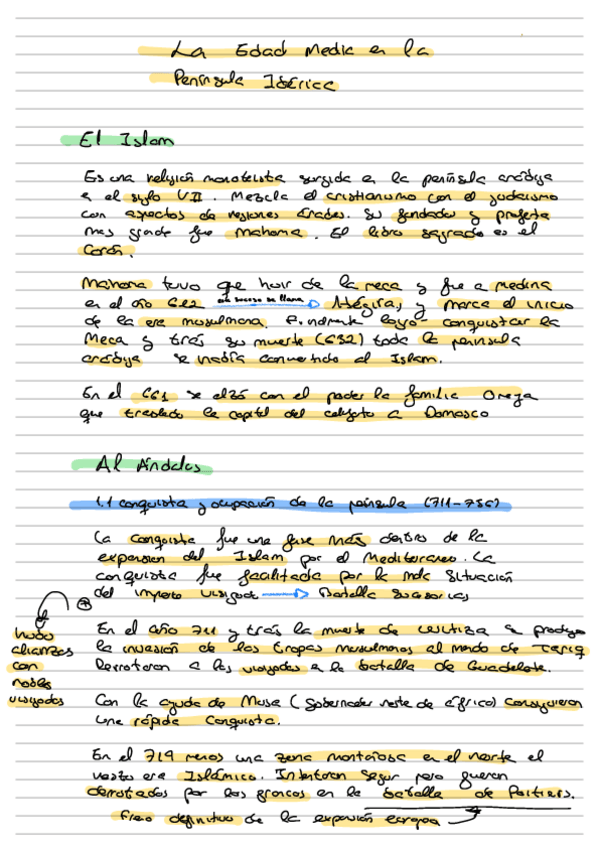 La Edad Media en la
Península Ibérica
El Islam
Es una religión monoteista surgida en la península arábiga
en el siglo VII. Mezcla el cristianismo con el judaismo
con aspectos de regiones árabes. Su fundador y profeta
mas grande fue Mahoma. El libro sagrado es el
Corán.
Mahoma tuvo que huir de la meca y fue a medina
en el año 622 este suceso se llama Hégira, y marca el inicio
de la era musulmana. Finalmente logró conquistar la
Meca y trás su muerte (632) toda la península
arábiga se había convertido al Islam.
En el 661 se alzó con el poder la familia Omeya
que traslado la capital del califato a Damasco
Al Ándalus
1.1 conquista y ocupación de la península (711-756)
La conquista fue una fase más dentro de la
expansion del Islam por el Mediterraneo. La
conquista fue facilitada por la mala situación
del imperio visigodo Batalla sucesorias
hubo
alianzas
con
nobles
visigodos
En el año 711 y trás la muerte de Witiza se produjo
la invasión de las tropas musulmanas al mando de Tariq
Derrotaron a los visigodos en la batalla de Guadalete.
Con la ayuda de Musa (gobernador norte de áfrica) consiguieron
una rápida conquista.
En el 719 menos una zona montañosa en el norte el
resto era Islámico. Intentaron seguir pero fueron
derrotados por los francos en la batalla de Poitiers.
freno definitivo de la expansión europea